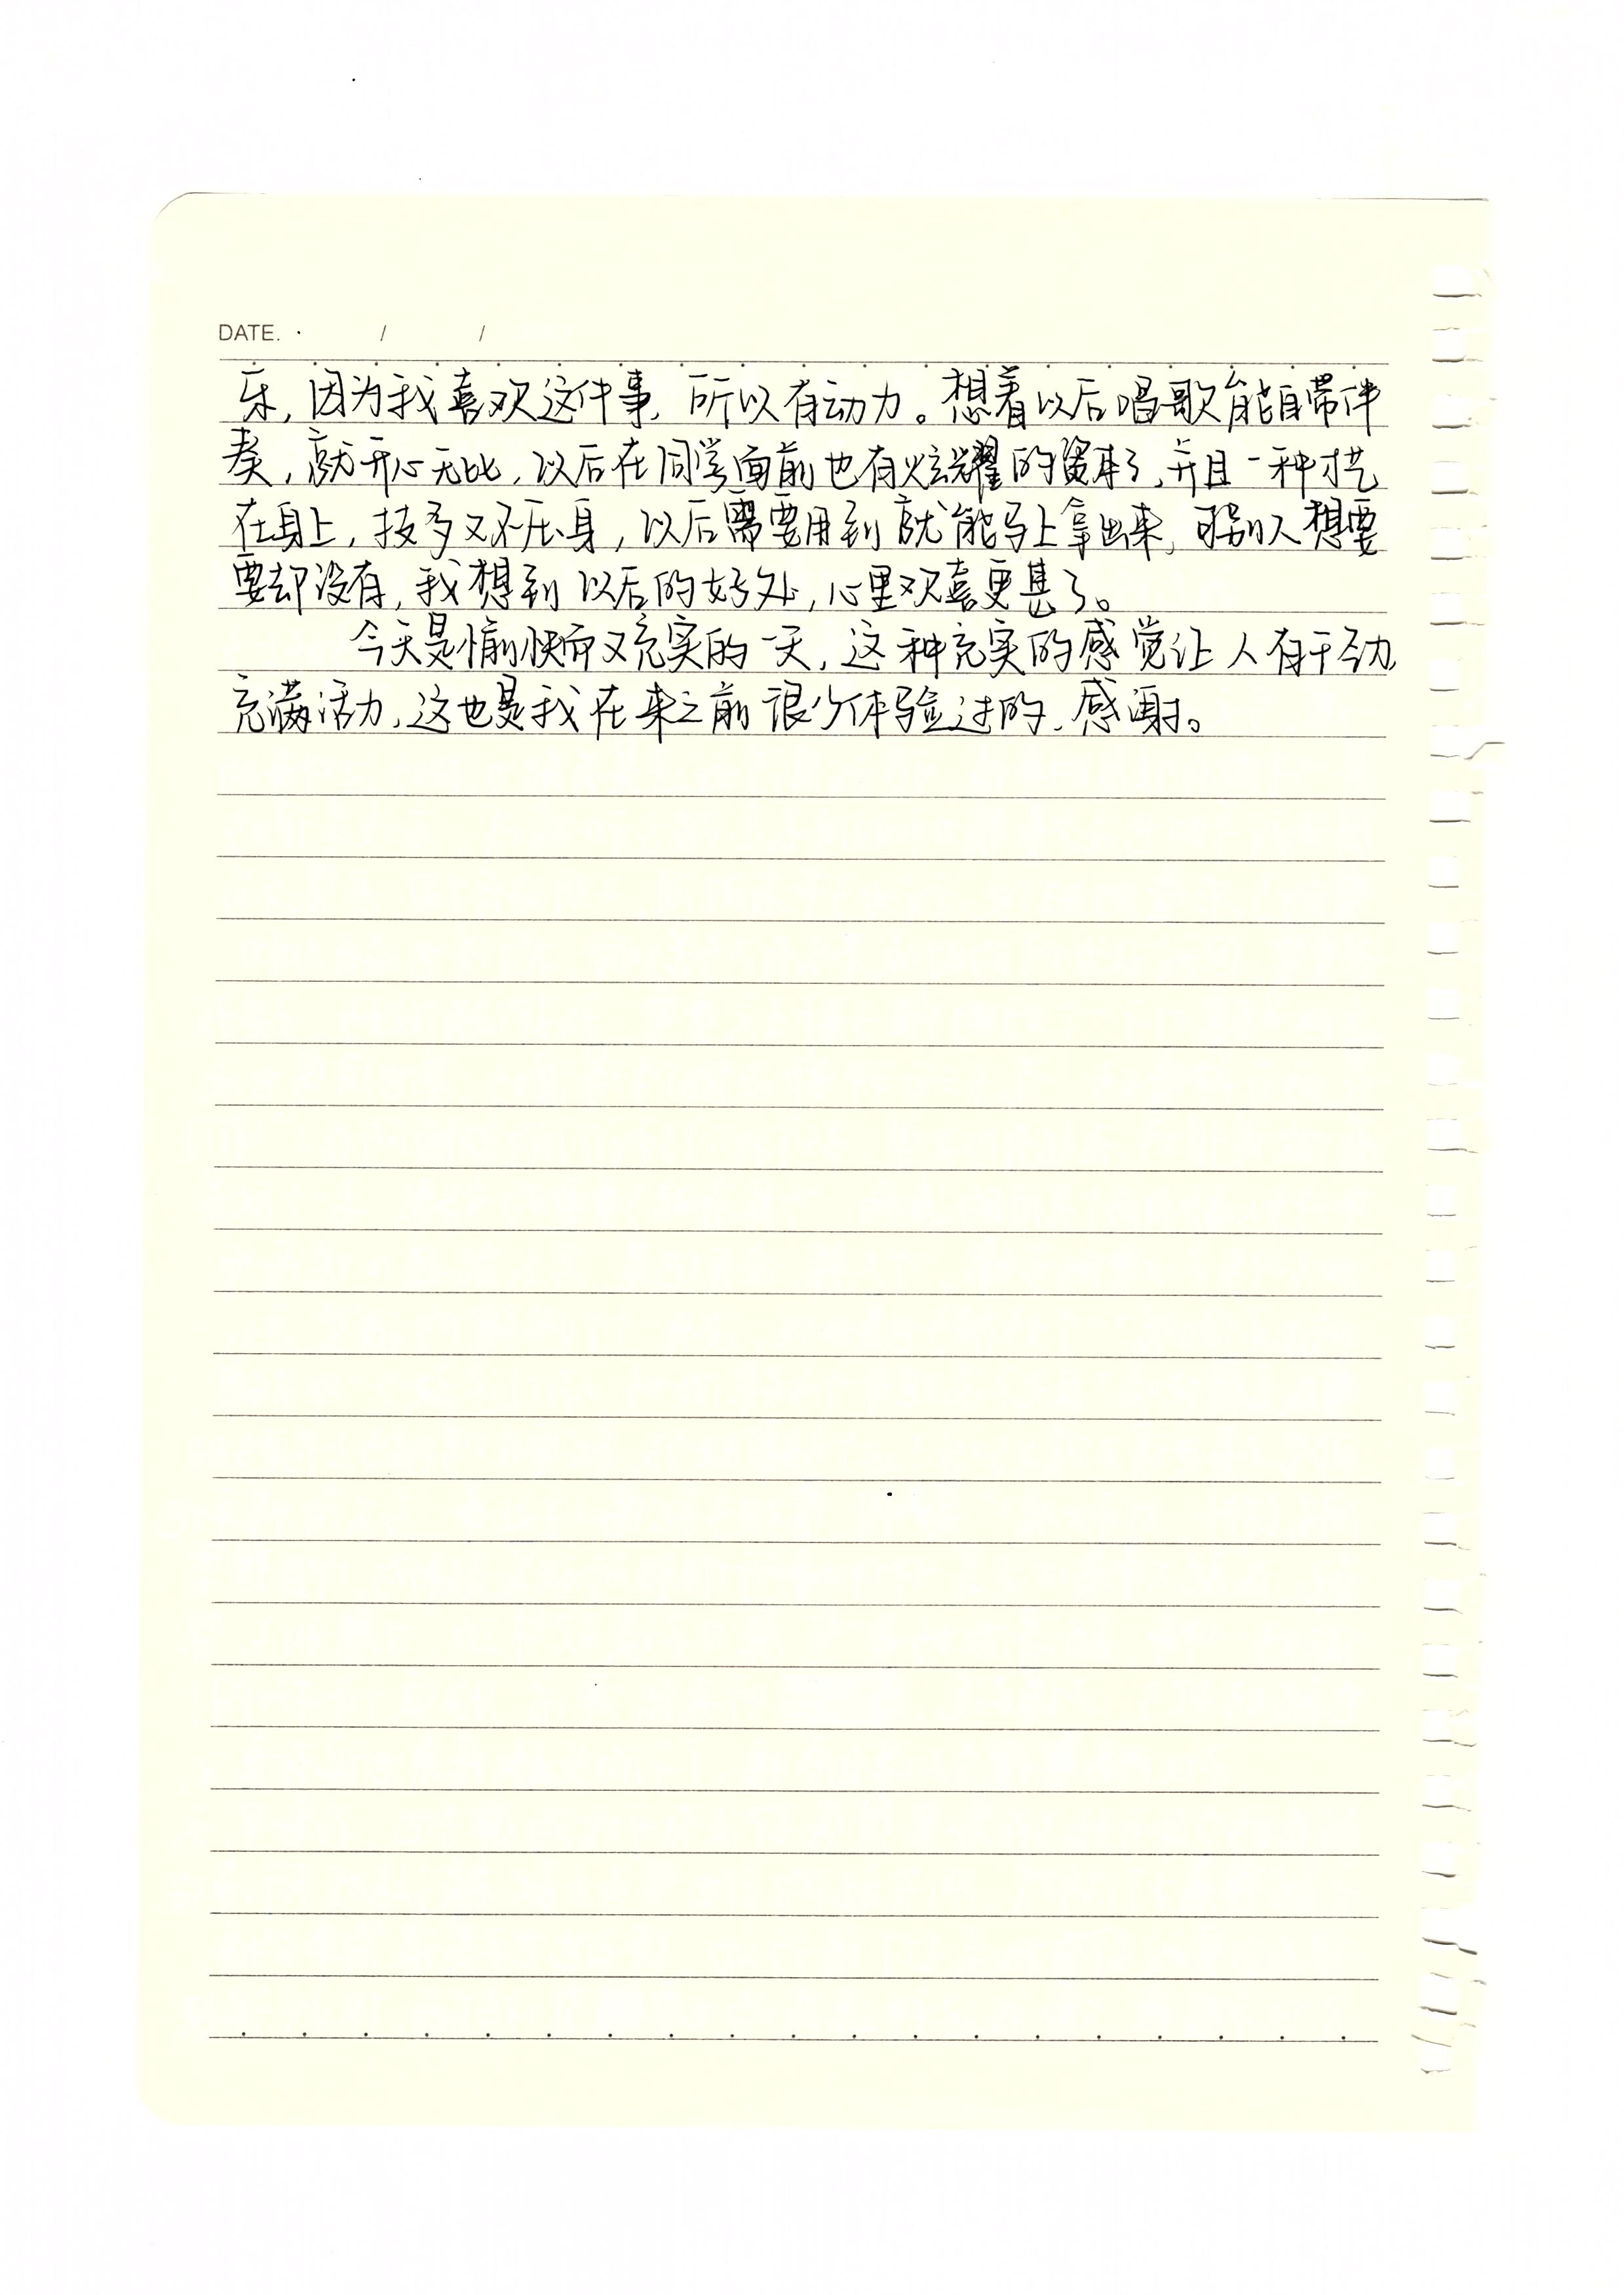 DATE. / /
乐，因为我喜欢这件事，所以有动力。想着以后唱歌能自带伴
奏，就开心无比，以后在同学面前也有炫耀的资本了，并且一种才艺
在身上，技多又不压身，以后需要用到就能马上拿出来，可别人想要
要却没有，我想到以后的好处，心里欢喜更甚了。
今天是愉快而又充实的一天，这种充实的感觉让人有干劲，
充满活力，这也是我在来之前很少体验过的，感谢。